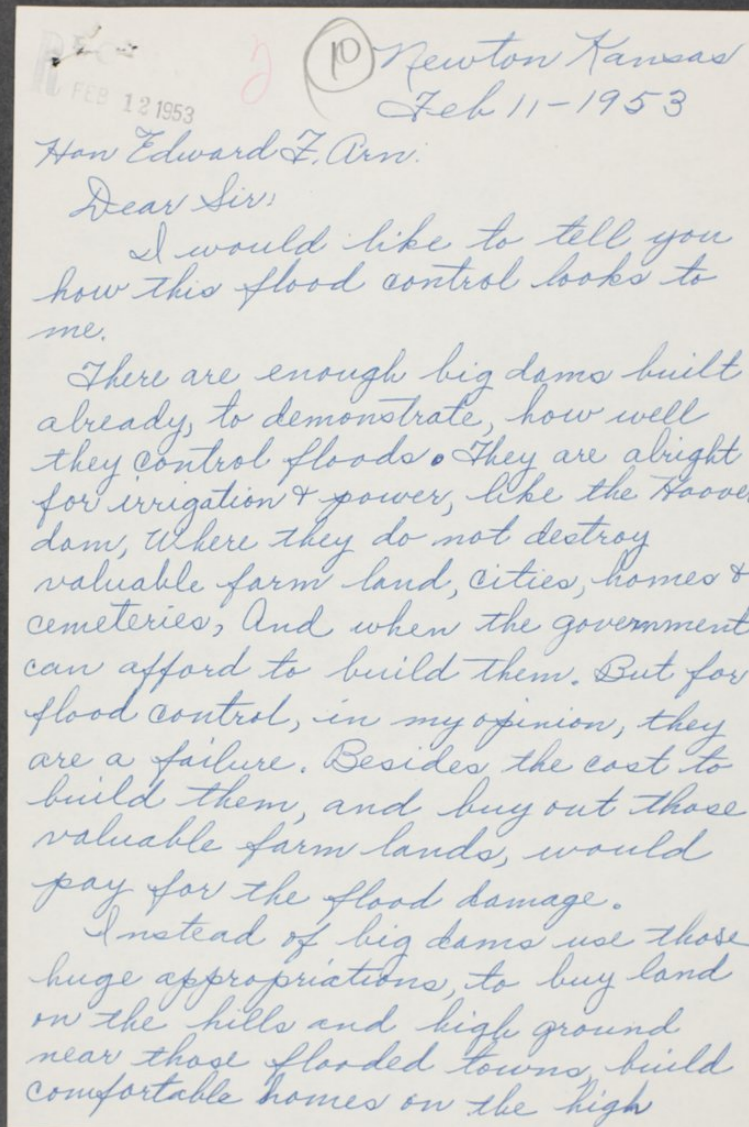 FEB 12 1953
10
Newton Kansas
Feb 11-1953
Hon Edward F. Arn.
Dear Sir:
I would like to tell you
how this flood control looks to
me.
There are enough big dams built
already, to demonstrate, how well
they control floods. They are alright
for irrigation & power, like the Hoover
dam, Where they do not destroy
valuable farm land, cities, homes &
cemeteries, And when the government
can afford to build them. But for
flood control, in my opinion, they
are a failure. Besides the cost to
build them, and buy out those
valuable farm lands, would
pay for the flood damage.
Instead of big dams use those
huge appropriations, to buy land
on the hills and high ground
near those flooded towns, build
comfortable homes on the high